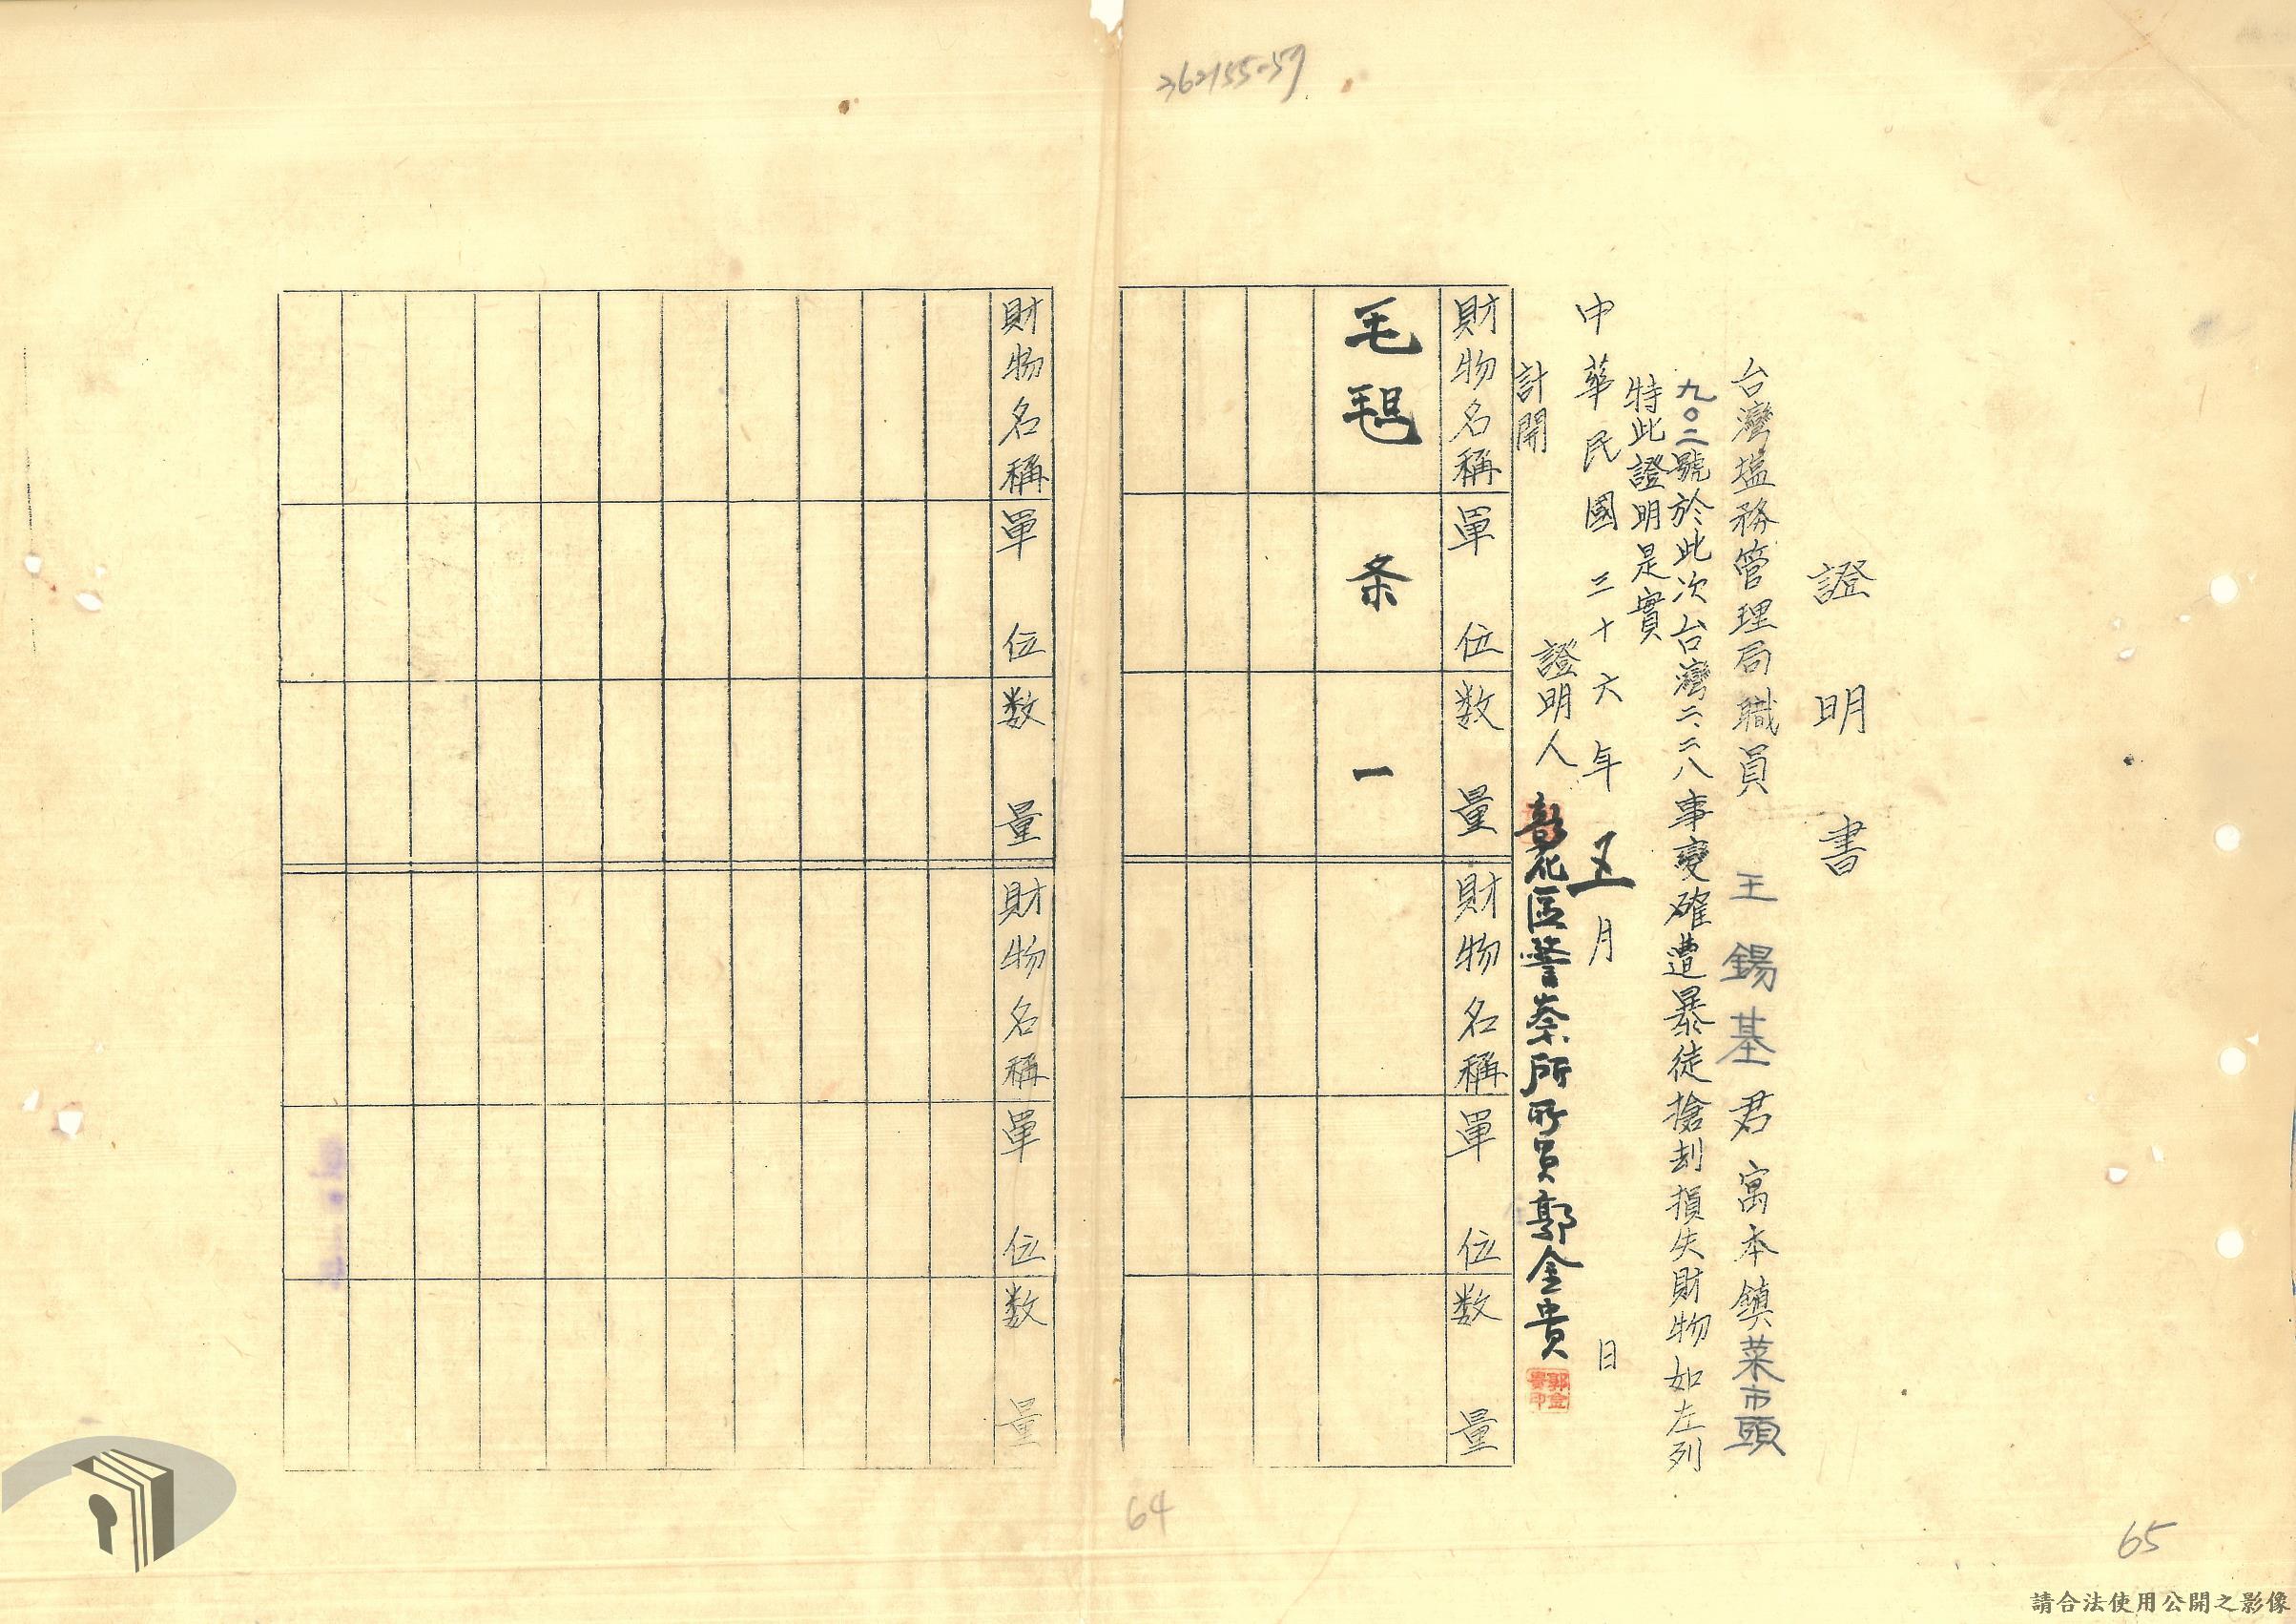 362155-57
證明書
台灣塩務管理局職員 王錫基 君寓本鎮菜市頭
九〇二號於此次台灣二.二八事變確遭暴徒搶刦損失財物如左列
特此證明是實
中華民國三十六年五月 日
證明人 彰化區警察所所員郭金貴
郭金貴印
計開
財物名稱 單位 数量 財物名稱 單位 数量
毛毯 条 一
財物名稱 單位 数量 財物名稱 單位 数量
64
65
請合法使用公開之影像